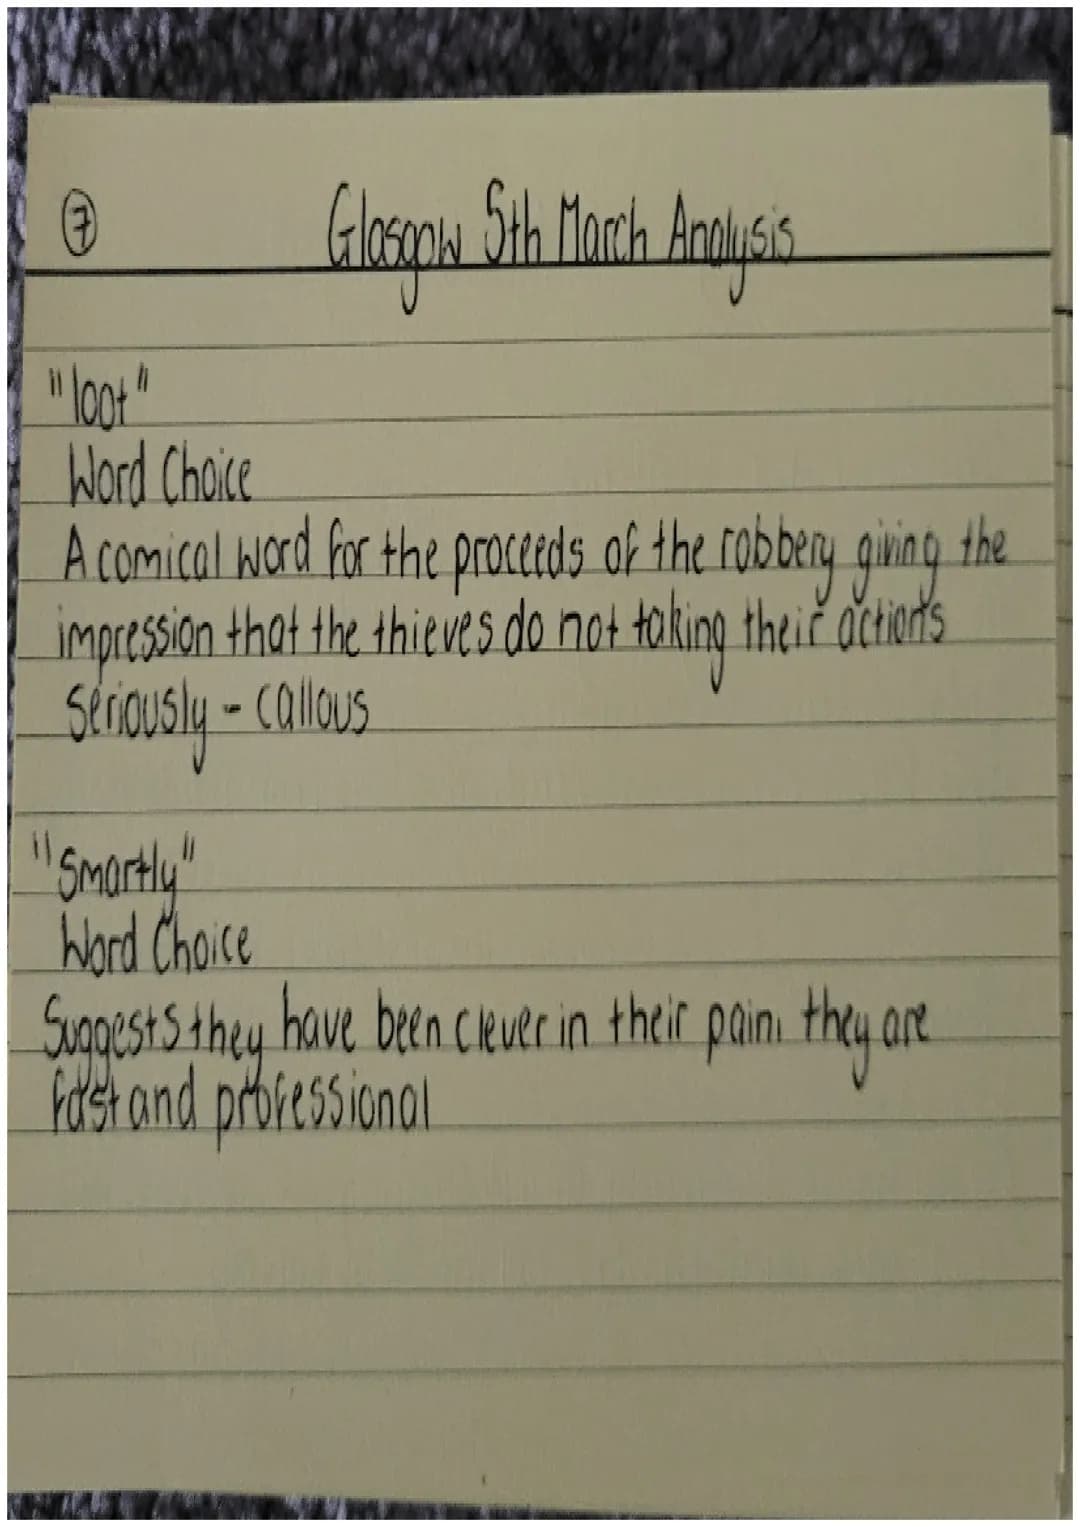 ⑦ Glasgow 5th March Analysis
"loot"
Word Choice
A comical word for the proceeds of the robbery giving the
impression that the thieves do not taking their actions
seriously - callous
"Smartly"
Word Choice
Suggests they have been clever in their pain, they are
fast and professional